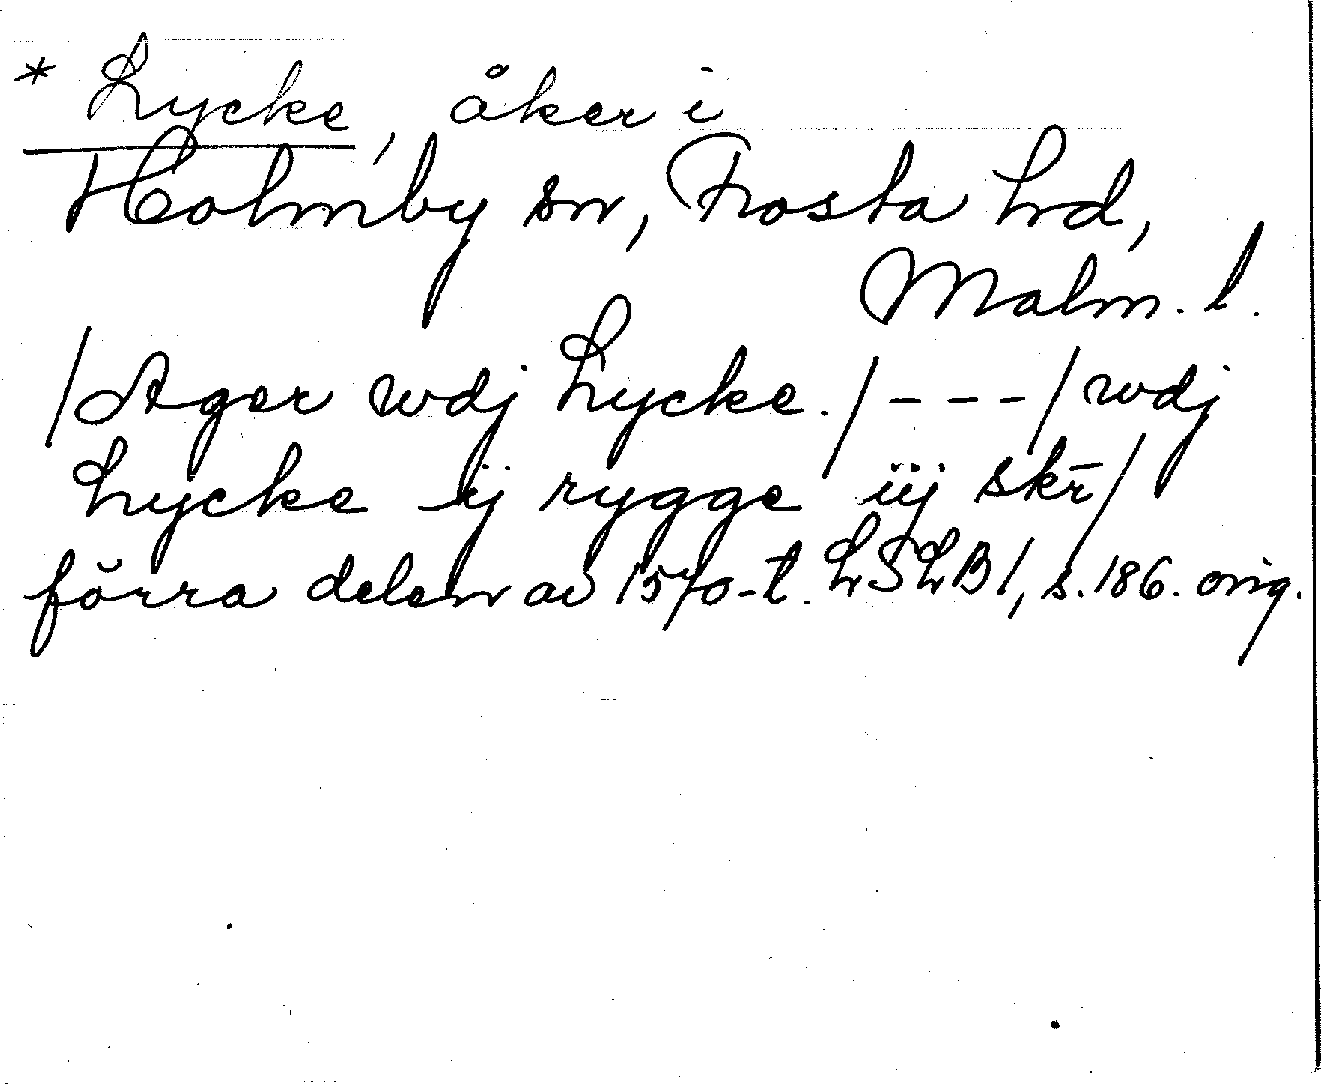 * Lycke, åker i
Holmby sn, Frosta hd,
Malm. l.
/Ager wdj Lycke./---/wdj
Lycke ij rygge iij skr̄/
förra delen av 1570-t. LSLB 1, s. 186. orig.